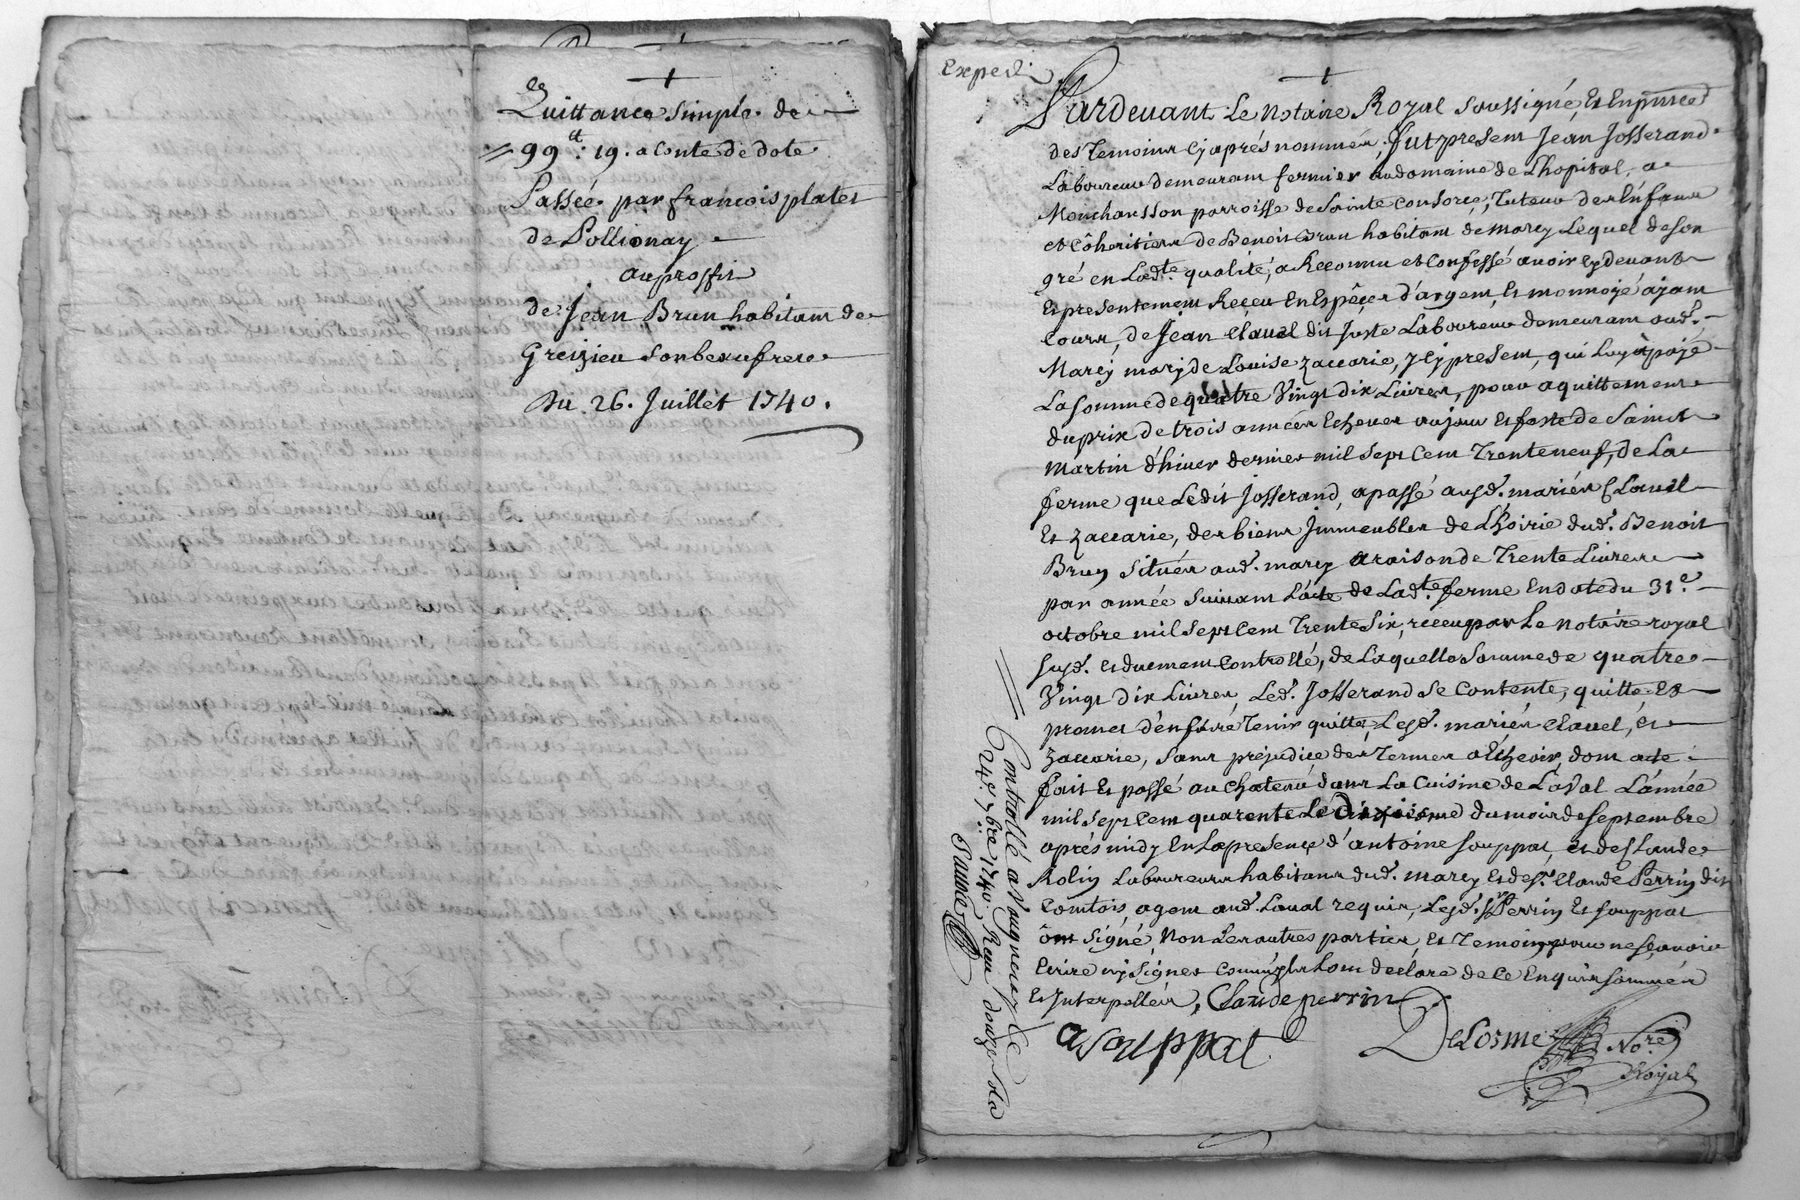 +
Quittance simple de
99 lt. 19. a Conte de dote
Passée par francois platet
de Pollionay
au proffit
de Jean Brun habitant de
Greizieu son beaufrere
Du 26. Juillet 1740.
Expedié
+
Pardevant Le Notaire Royal soussigné, Et En pnce
des Temoins Cy aprés nommés, fut present Jean Josserand
Laboureur demeurant fermier au domaine de L'hopital, a
Monchansson parroisse de Sainte Consorce, Tuteur des Enfans
et Côheritiers de Benoit Brun habitant de Marcy Lequel de son
gré en Lad.te qualité, a Reconnu et Confessé avoir cy devant
Et presentement Reçeu En Espêçes d'argent, Et monnoye ayant
Cours, de Jean Clavel dit Juste Laboureur demeurant aud.
Marcy mary de Louise Zaccarie, y Cy present, qui Luy a payé
La somme de quatre Vingt dix Livres, pour aquittement
du prix de trois années Echeues au jour Et feste de Saint
Martin d'hiver dernier mil Sept Cent Trente neuf, de La
ferme que Ledit Josserand a passé ausd. mariés Clavel
Et Zaccarie, des biens Immeubles de L'hoirie dud. Benoit
Brun situés aud. Marcy a raison de Trente Livres
par année suivant L'acte de Lad.te ferme En date du 31.e
octobre mil Sept Cent Trente Six, receu par Le Notaire royal
susd. Et duement Controllé, de Laquelle Somme de quatre
Vingt dix Livres, Led. Josserand Se Contente, quitte Et
promet d'en faire Tenir quittes Lesd. mariés Clavel, Et
Zaccarie, Sans préjudice des Termes a Echeoir, dont acte
fait Et passé au Chateau dans La Cuisine de Laval L'année
mil Sept Cent quarente Le dixieme du mois de septembre
aprés midy En La presençe d'antoine Souppat, et de Claude
Rolin Laboureurs habitans dud. Marcy Et de s.r Claude Perrin dit
Comtois, agent aud. Laval requis, Lesd. s.r Perrin Et Souppat
ont signé, Non Les autres parties, Et Temoin pour ne sçavoir
Ecrire ny signer Comm'ils L'ont déclaré de Ce Enquis sommés
Et Interpellés, Claude perrin
a Souppat
DeLorme No.re
Royal
Controllé a Vaugneray Le
24.e 7bre 1740. Reçu douze sols